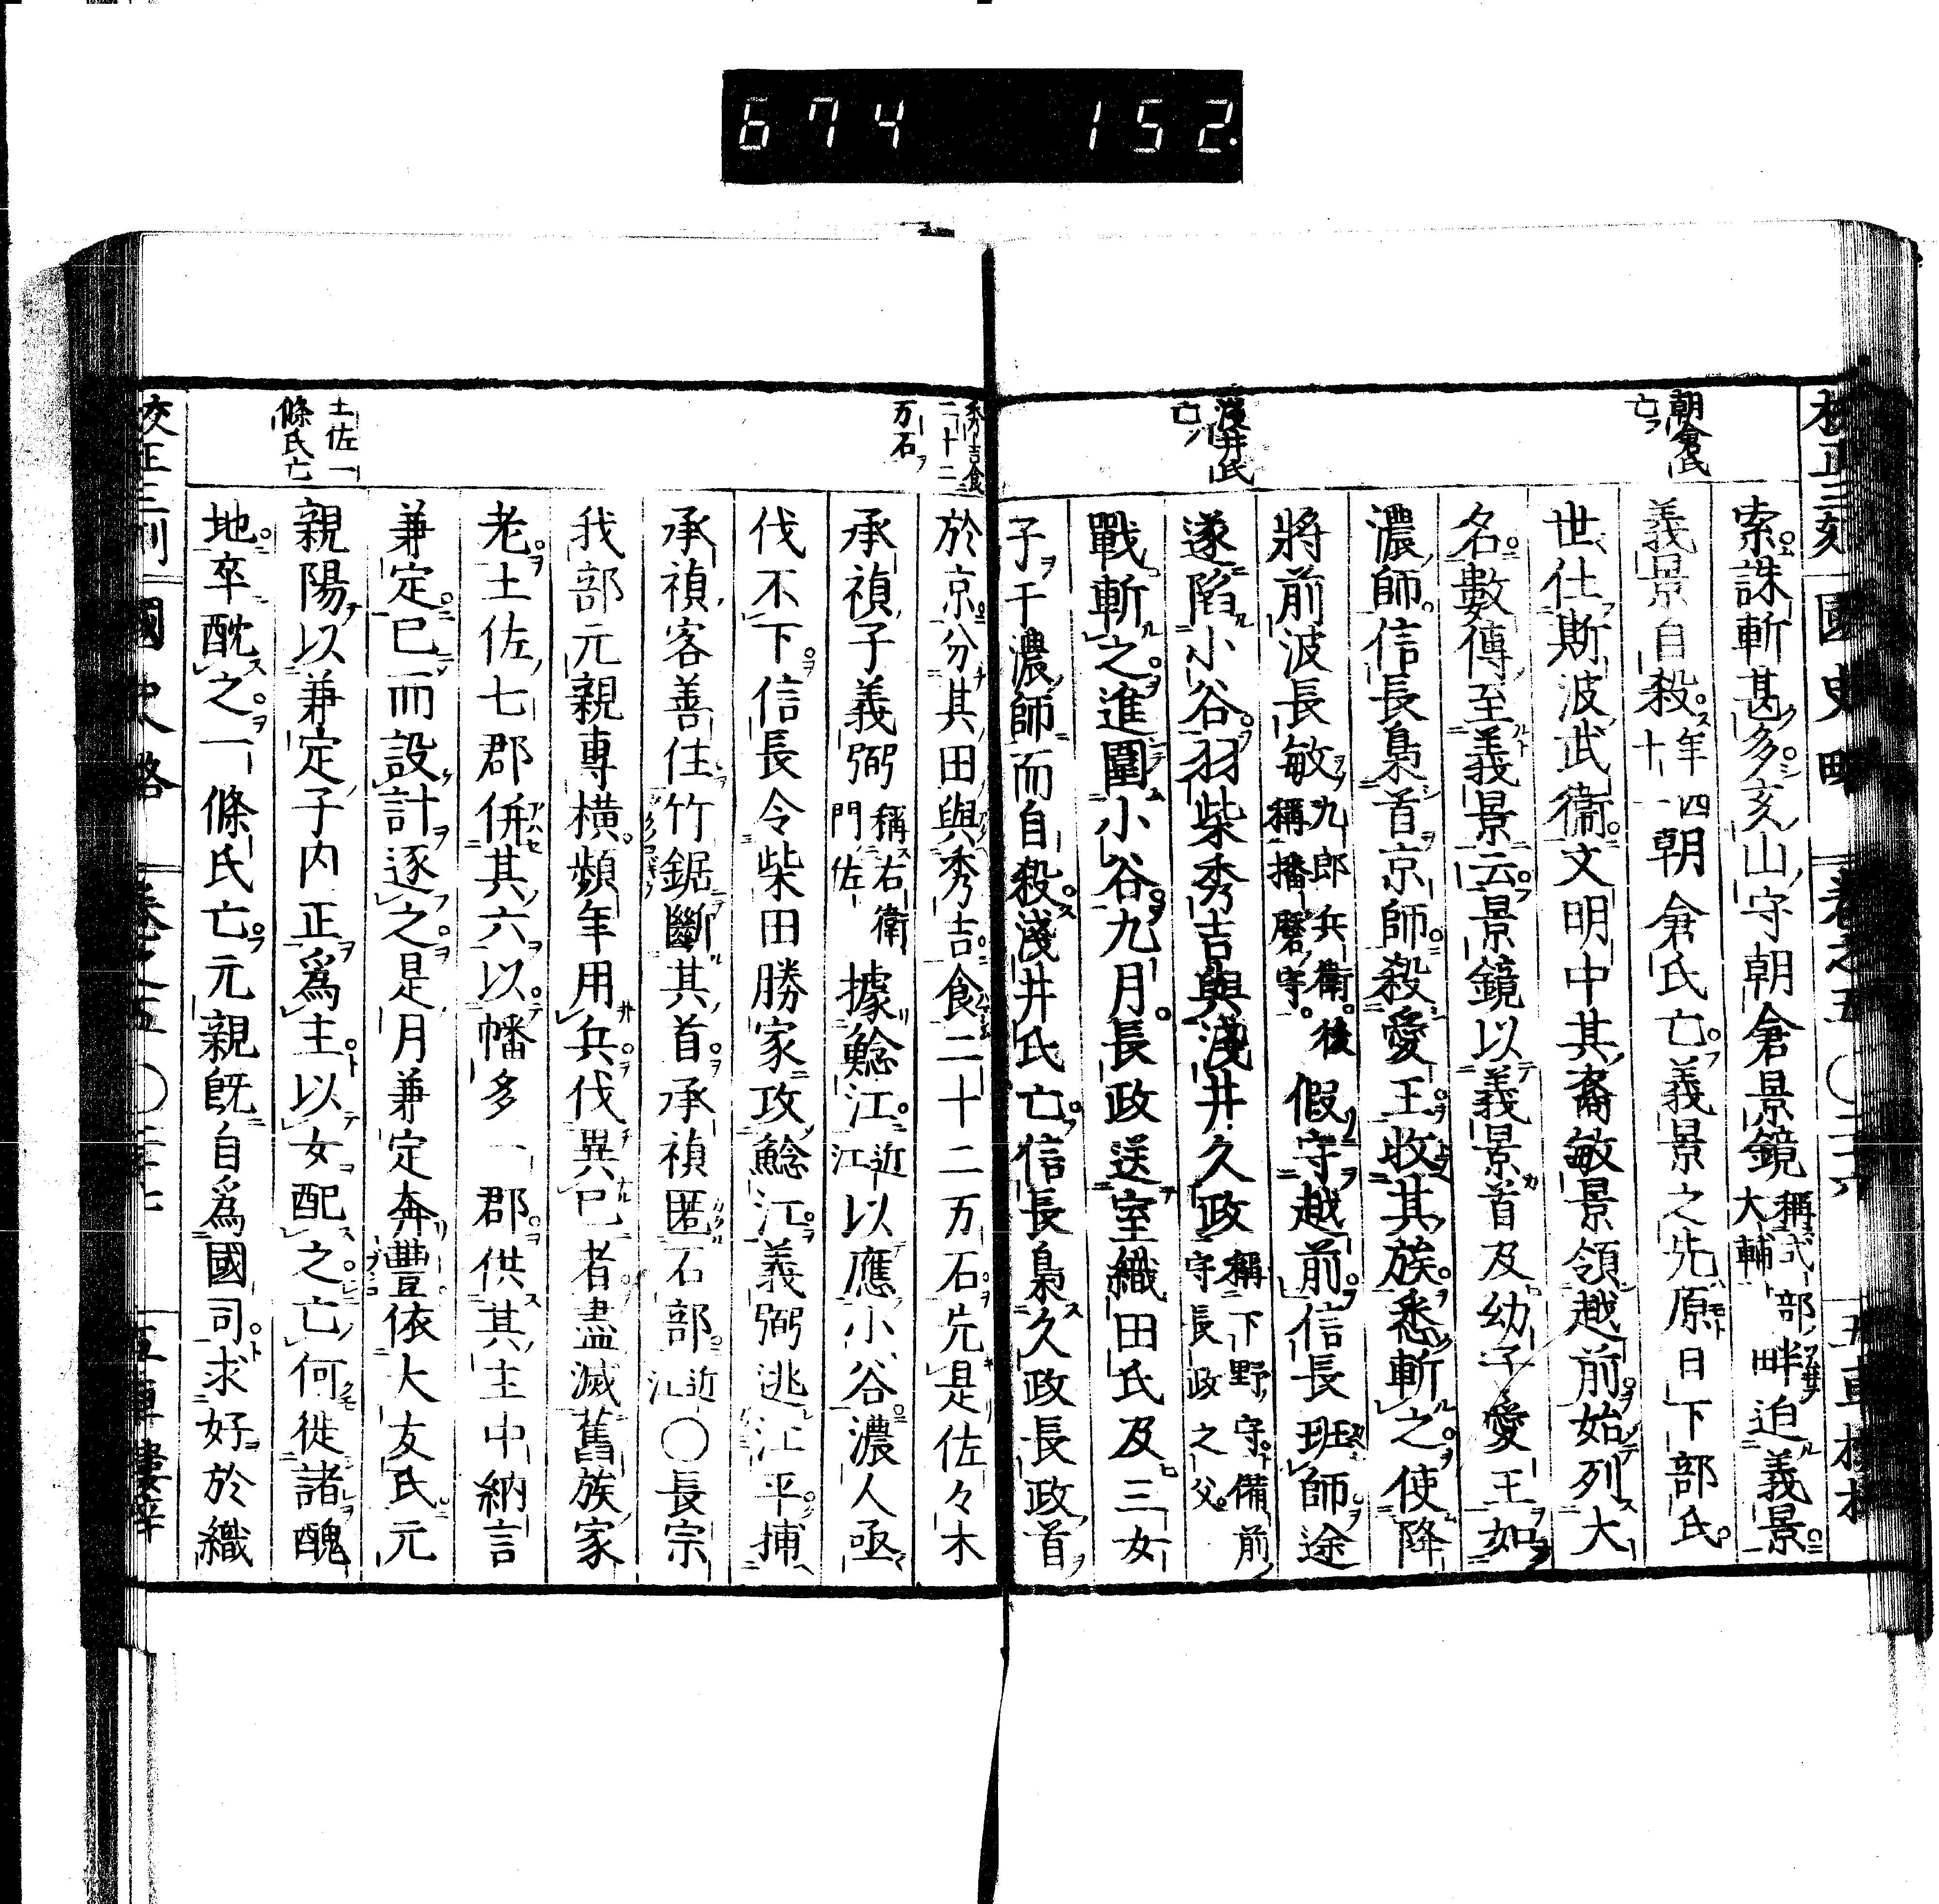 674 152.
校正三刻 國史略 卷之五 〇三十六 五車樓梓
朝倉氏
亡
淺井氏
亡
索誅斬甚多亥山守朝倉景鏡稱式部大輔畔迫義景
義景自殺年四十一朝倉氏亡義景之先原日下部氏
世仕斯波武衞文明中其裔敏景領越前始列大
名數傳至義景云景鏡以義景首及幼子愛王如
濃師信長梟首京師殺愛王收其族悉斬之使降
將前波長敏九郎兵衞後稱播磨守假守越前信長班師途
遂陷小谷羽柴秀吉與淺井久政稱下野守備前守長政之父
戰斬之進圍小谷九月長政送室織田氏及三女
子于濃師而自殺淺井氏亡信長梟久政長政首
秀吉食
二十二
万石
土佐一
條氏亡
於京分其田與秀吉食二十二万石先是佐々木
承禎子義弼稱右衞門佐據鯰江近江以應小谷濃人亟
伐不下信長令柴田勝家攻鯰江義弼逃江平捕
承禎客善住竹鋸斷其首承禎匿石部近江〇長宗
我部元親專橫頻年用兵伐異已者盡滅舊族家
老土佐七郡併其六以幡多一郡供其主中納言
兼定已而設計逐之是月兼定奔豐依大友氏元
親陽以兼定子內正爲主以女配之亡何徙諸醜
地卒酖之一條氏亡元親既自爲國司求好於織
校正三刻 國史略 卷之五 〇三十七 五車樓梓